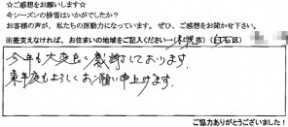 ☆ご感想をお願いします☆
今シーズンの除雪はいかがでしたか？
お客様の声が、私たちの原動力になっています。ぜひ、ご感想をお聞かせ下さい。
※差支えなければ、お住まいの地域をご記入ください→(札幌市)(白石区)
今年も大変良く感謝しております。
来年度もよろしくお願い申し上げます。
ご協力ありがとうございました！